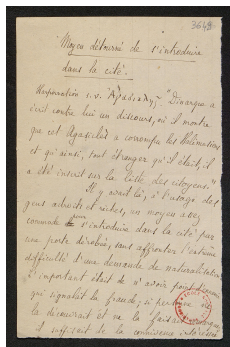 3642
Moyen détourné de s'introduire
dans la cité.
Harpocration s.v. "Dinarque a
écrit contre lui un discours, où il montre
que cet Agasiclès a corrompu les Halimusiens
et qu'ainsi, tout étranger qu'il était, il
a été inscrit sur la liste des citoyens."
Il y avait là, à l'usage des
gens adroits et riches, un moyen assez
commode pour s'introduire dans la cité par
une porte dérobée, sans affronter l'extrême
difficulté d'une demande de naturalisation
L'important était de n'avoir point d'ennemi
qui signalât la fraude; si personne ne
la découvrait et ne la
il suffisait de la connivence intéressée